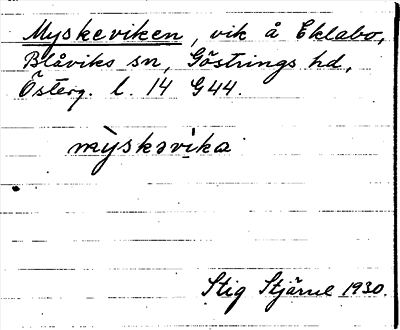 Myskeviken, vik å Eklabo,
Blåviks sn, Göstrings hd,
Österg. l. 14 G44.
mỳskəvika
Stig Stjärne 1930.